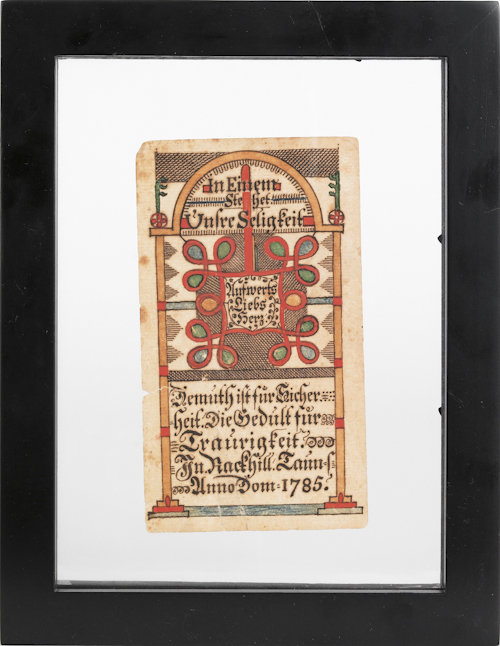 In Einem
Ste het
Unsre Seligkeit
Aufwerts
Liebs
Herz
Demuth ist für Sicher⸗
heit. Die Gedult für
Traurigkeit.
In. Rackhill. Taun⸗
Anno Dom⸗1785.